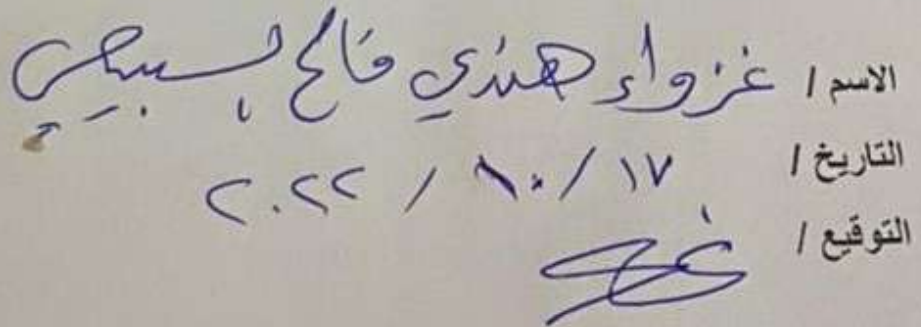 الاسم / غزواء هندي فالح السبيعي
التاريخ / ١٧ / ١٠ / ٢٠٢٢
التوقيع /